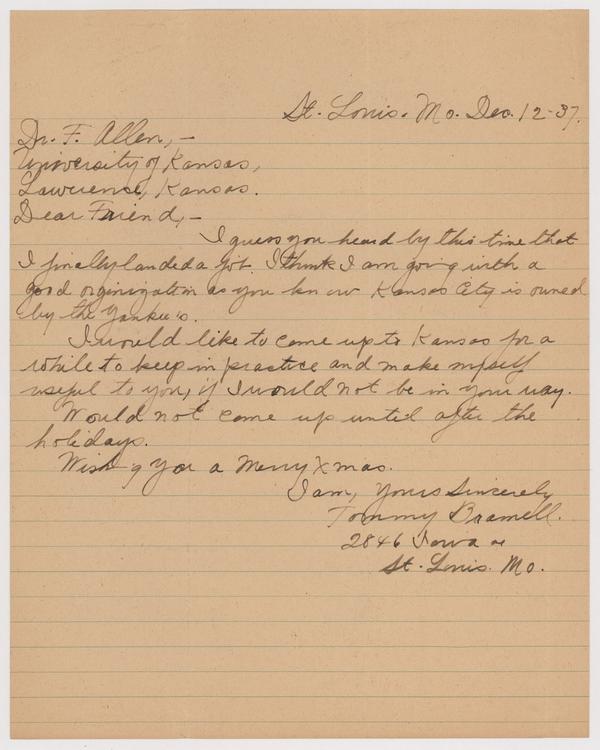 St. Louis. Mo. Dec. 12-37.
Dr. F. Allen,-
University of Kansas,
Lawrence, Kansas.
Dear Friend,-
I guess you heard by this time that
I finally landed a job. I think I am going with a
good orginization as you know Kansas City is owned
by the Yankee's.
I would like to come up to Kansas for a
while to keep in practice and make myself
useful to you, if I would not be in your way.
Would not come up until after the
holidays.
Wish g you a Merry Xmas.
I am, Yours Sincerely
Tommy Bramell.
2846 Iowa
St. Louis. Mo.